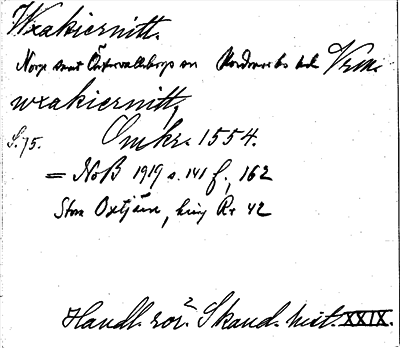 Wxakiernitt.
Norge samt Östervallskogs sn Nordmarks hd Vrm.
wxakiernitt,
S. 75. Omkr. 1554.
= NoB 1919 s. 141 f., 162
Stora Oxtjärn, hing Rr 42
Handl. rör. Skand. hist. XXIX.